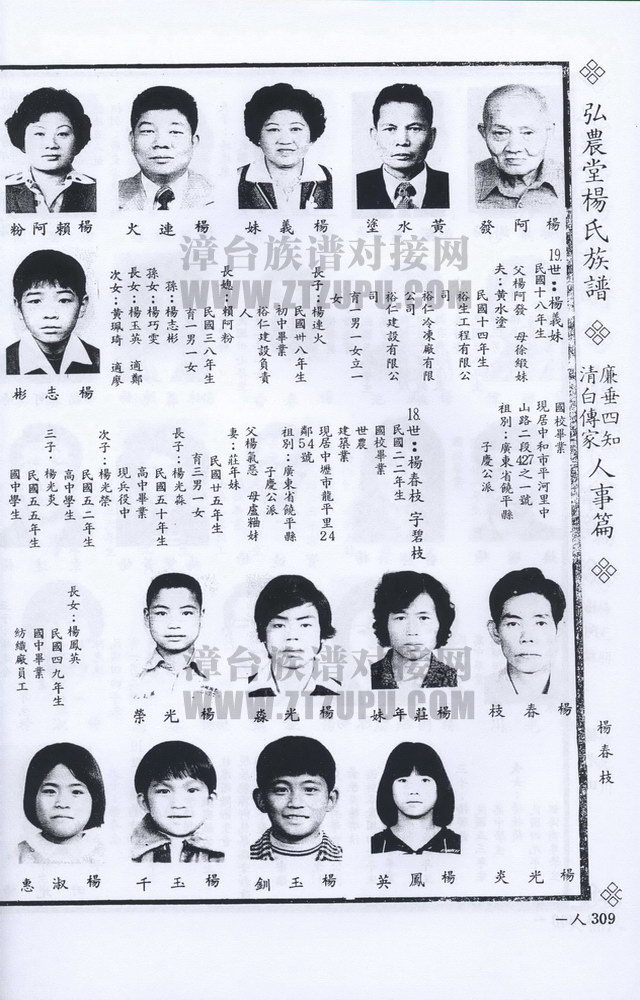 弘農堂楊氏族譜
廉垂四知
清白傳家
人事篇
楊春枝
一人309
楊阿發
黃水塗
楊義妹
楊連火
楊賴阿粉
19.世::楊義妹
民國十八年生
父楊阿發 母徐緞妹
夫:黃水塗
民國十四年生
裕生工程有限公
司
裕仁冷凍廠有限
公司
裕仁建設有限公
司
育一男一女立一
女
長子:楊連火
民國卅八年生
初中畢業
裕仁建設負責
人
長媳:賴阿粉
民國三八年生
育一男一女
孫:楊志彬
孫女:楊巧雯
長女:楊玉英 適鄭
次女:黃珮琦 適廖
楊志彬
國校畢業
現居中和市平河里中
山路二段427之一號
祖別:廣東省饒平縣
子慶公派
18.世::楊春枝 字碧枝
民國二二年生
國校畢業
世農
建築業
現居中壢市龍平里24
鄰54號
祖別:廣東省饒平縣
子慶公派
父楊氣惡 母盧糍妹
妻:莊年妹
民國廿五年生
育三男一女
長子:楊光淼
民國五十年生
高中畢業
現兵役中
次子:楊光榮
民國五二年生
高中學生
三子:楊光炎
民國五五年生
國中學生
長女:楊鳳英
民國四九年生
國中畢業
紡織廠員工
楊春枝
楊莊年妹
楊光淼
楊光榮
楊光炎
楊鳳英
楊玉釧
楊玉千
楊淑惠
漳台族谱对接网
WWW.ZTZUPU.COM
漳台族谱对接网
WWW.ZTZUPU.COM